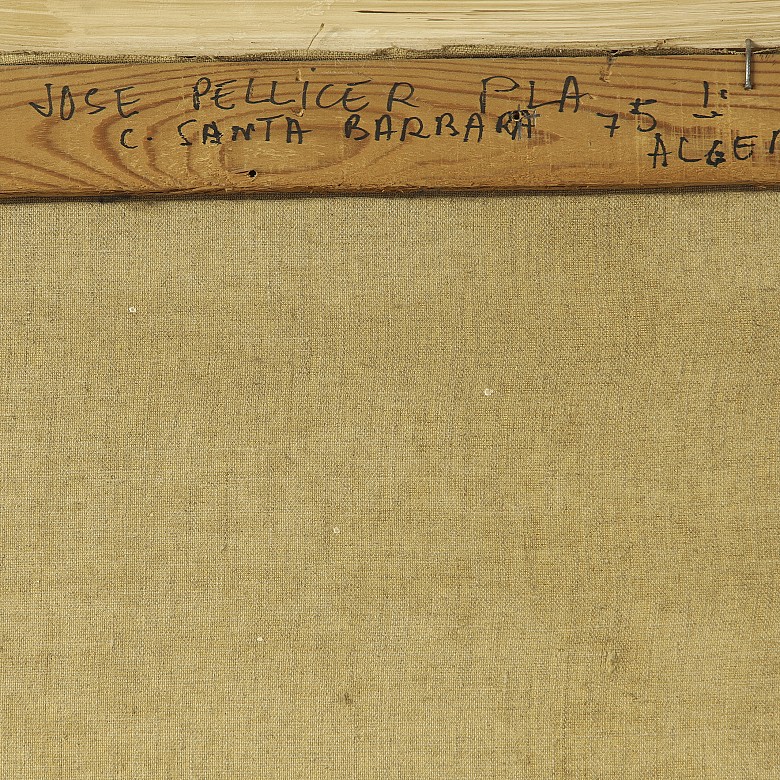 JOSE PELLICER PLA
C. SANTA BARBARA 75 1º
ALGE